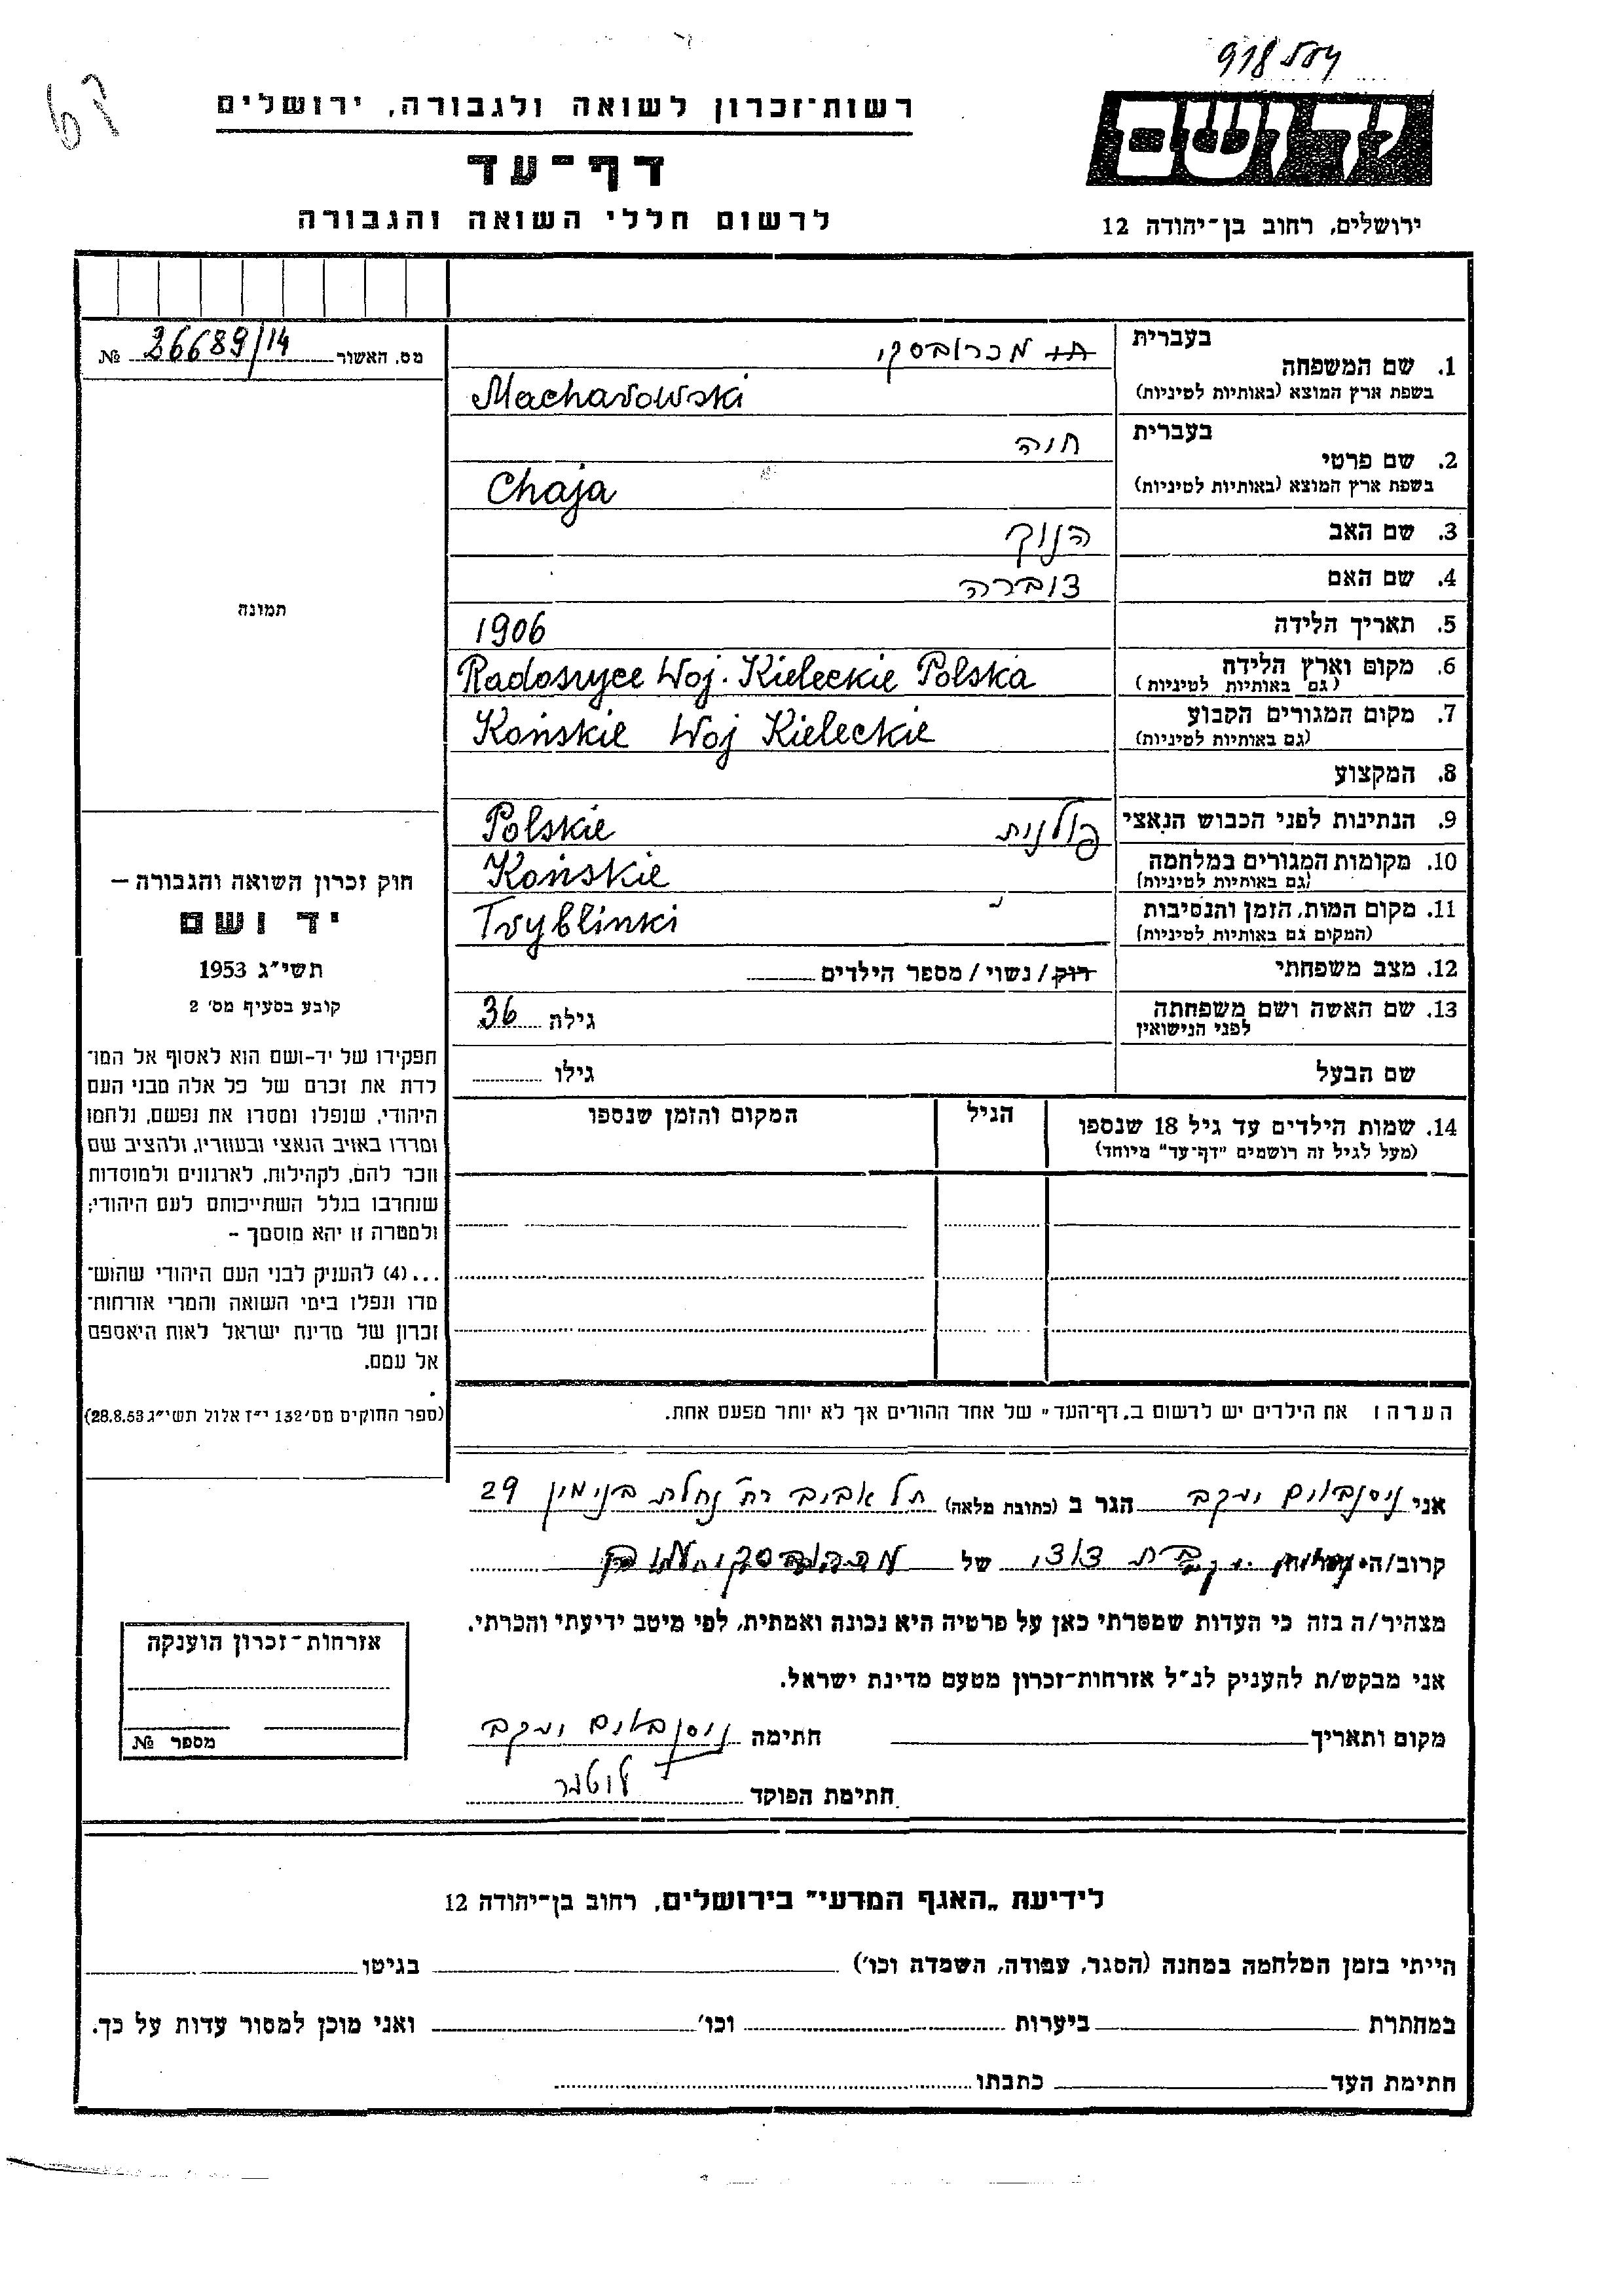 918504
67
רשות־זכרון לשואה ולגבורה, ירושלים
דף־עד
לרשום חללי השואה והגבורה
יד ושם
ירושלים, רחוב בן־יהודה 12
מס. האשור 26689/14 №
בעברית
1. שם המשפחה מכרובסקי
בשפת ארץ המוצא (באותיות לטיניות) Macharowski
בעברית
2. שם פרטי חיה
בשפת ארץ המוצא (באותיות לטיניות) Chaja
3. שם האב הנוך
4. שם האם
5. תאריך הלידה 1906
6. מקום וארץ הלידה Radoszyce Woj. Kieleckie Polska
(גם באותיות לטיניות)
7. מקום המגורים הקבוע Końskie Woj Kieleckie
(גם באותיות לטיניות)
8. המקצוע
9. הנתינות לפני הכבוש הנאצי פולנית Polskie
10. מקומות המגורים במלחמה Końskie
(גם באותיות לטיניות)
11. מקום המות, הזמן והנסיבות Tryblinski
(המקום גם באותיות לטיניות)
12. מצב משפחתי רוק/נשוי/מספר הילדים
13. שם האשה ושם משפחתה גילה 36
לפני הנישואין
שם הבעל גילו
14. שמות הילדים עד גיל 18 שנספו הגיל המקום והזמן שנספו
(מעל לגיל זה רושמים "דף־עד" מיוחד)
תמונה
חוק זכרון השואה והגבורה –
יד ושם
תשי״ג 1953
קובע בסעיף מס׳ 2
תפקידו של יד-ושם הוא לאסוף אל המו־
לדת את זכרם של כל אלה מבני העם
היהודי, שנפלו ומסרו את נפשם, נלחמו
ומרדו באויב הנאצי ובעוזריו, ולהציב שם
וזכר להם, לקהילות, לארגונים ולמוסדות
שנחרבו בגלל השתייכותם לעם היהודי;
ולמטרה זו יהא מוסמך –
...(4) להעניק לבני העם היהודי שהוש־
מדו ונפלו בימי השואה והמרי אזרחות־
זכרון של מדינת ישראל לאות היאספם
אל עמם.
(ספר החוקים מס׳ 132 י״ז אלול תשי״ג 28.8.53)
הערה: את הילדים יש לרשום ב„דף־העד״ של אחד ההורים אך לא יותר מפעם אחת.
אני ניסנבוים יעקב הגר ב (כתובת מלאה) תל אביב רח׳ נחלת בנימין 29
קרוב/ה של
מצהיר/ה בזה כי העדות שמסרתי כאן על פרטיה היא נכונה ואמתית, לפי מיטב ידיעתי והכרתי.
אני מבקש/ת להעניק לנ״ל אזרחות־זכרון מטעם מדינת ישראל.
מקום ותאריך חתימה ניסנבוים יעקב
חתימת הפוקד
אזרחות־זכרון הוענקה
מספר №
לידיעת „האגף המדעי״ בירושלים, רחוב בן־יהודה 12
הייתי בזמן המלחמה במחנה (הסגר, עבודה, השמדה וכו׳) בגיטו
במחתרת ביערות וכו׳ ואני מוכן למסור עדות על כך.
חתימת העד כתבתו